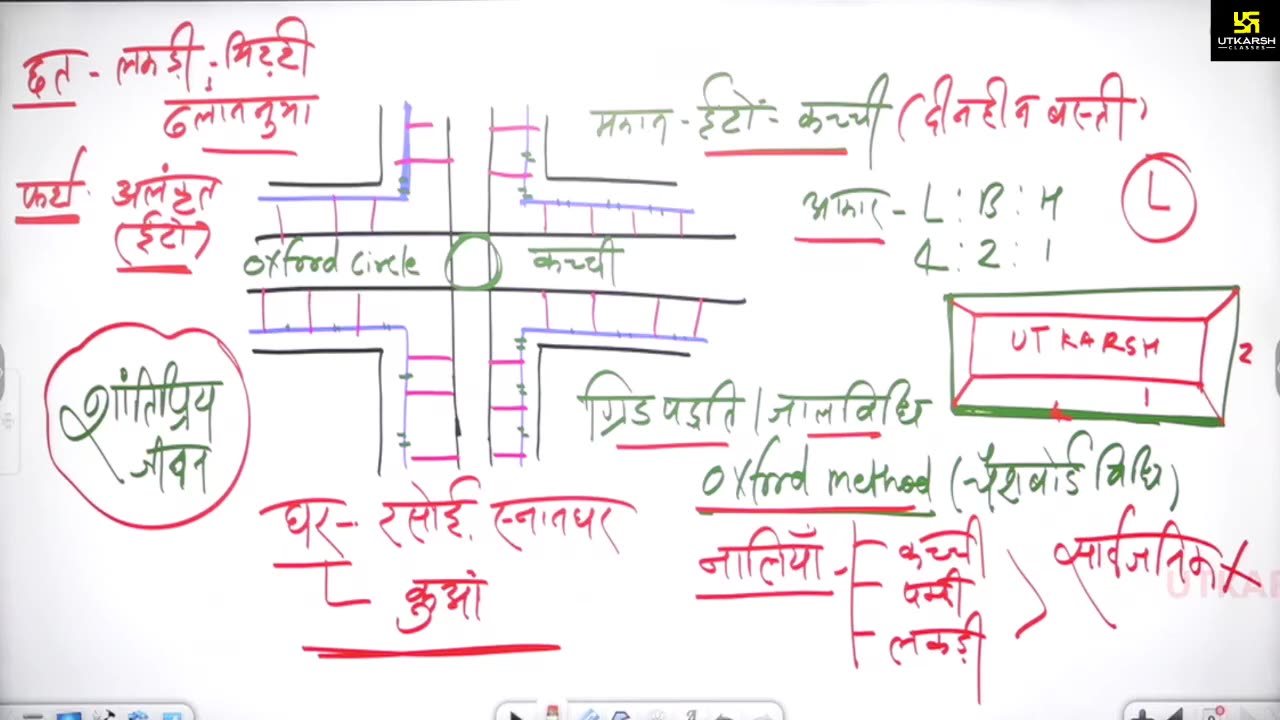 UTKARSH
CLASSES
छत - लकड़ी ; मिट्टी
ढलाननुमा
फर्श - अलंकृत
(ईंटों)
मकान - ईटों - कच्ची (दीनहीन बस्ती)
आकार - L : B : H
4 : 2 : 1
L
Oxford Circle
कच्ची
UTKARSH
2
1
4
शांतिप्रिय
जीवन
ग्रिड पद्दति / जालविधि
Oxford method (चैसबोर्ड विधि)
घर - रसोई, स्नानघर
कुआं
नालियाँ - कच्ची
पक्की
लकड़ी
सार्वजनिक X
UTKAR